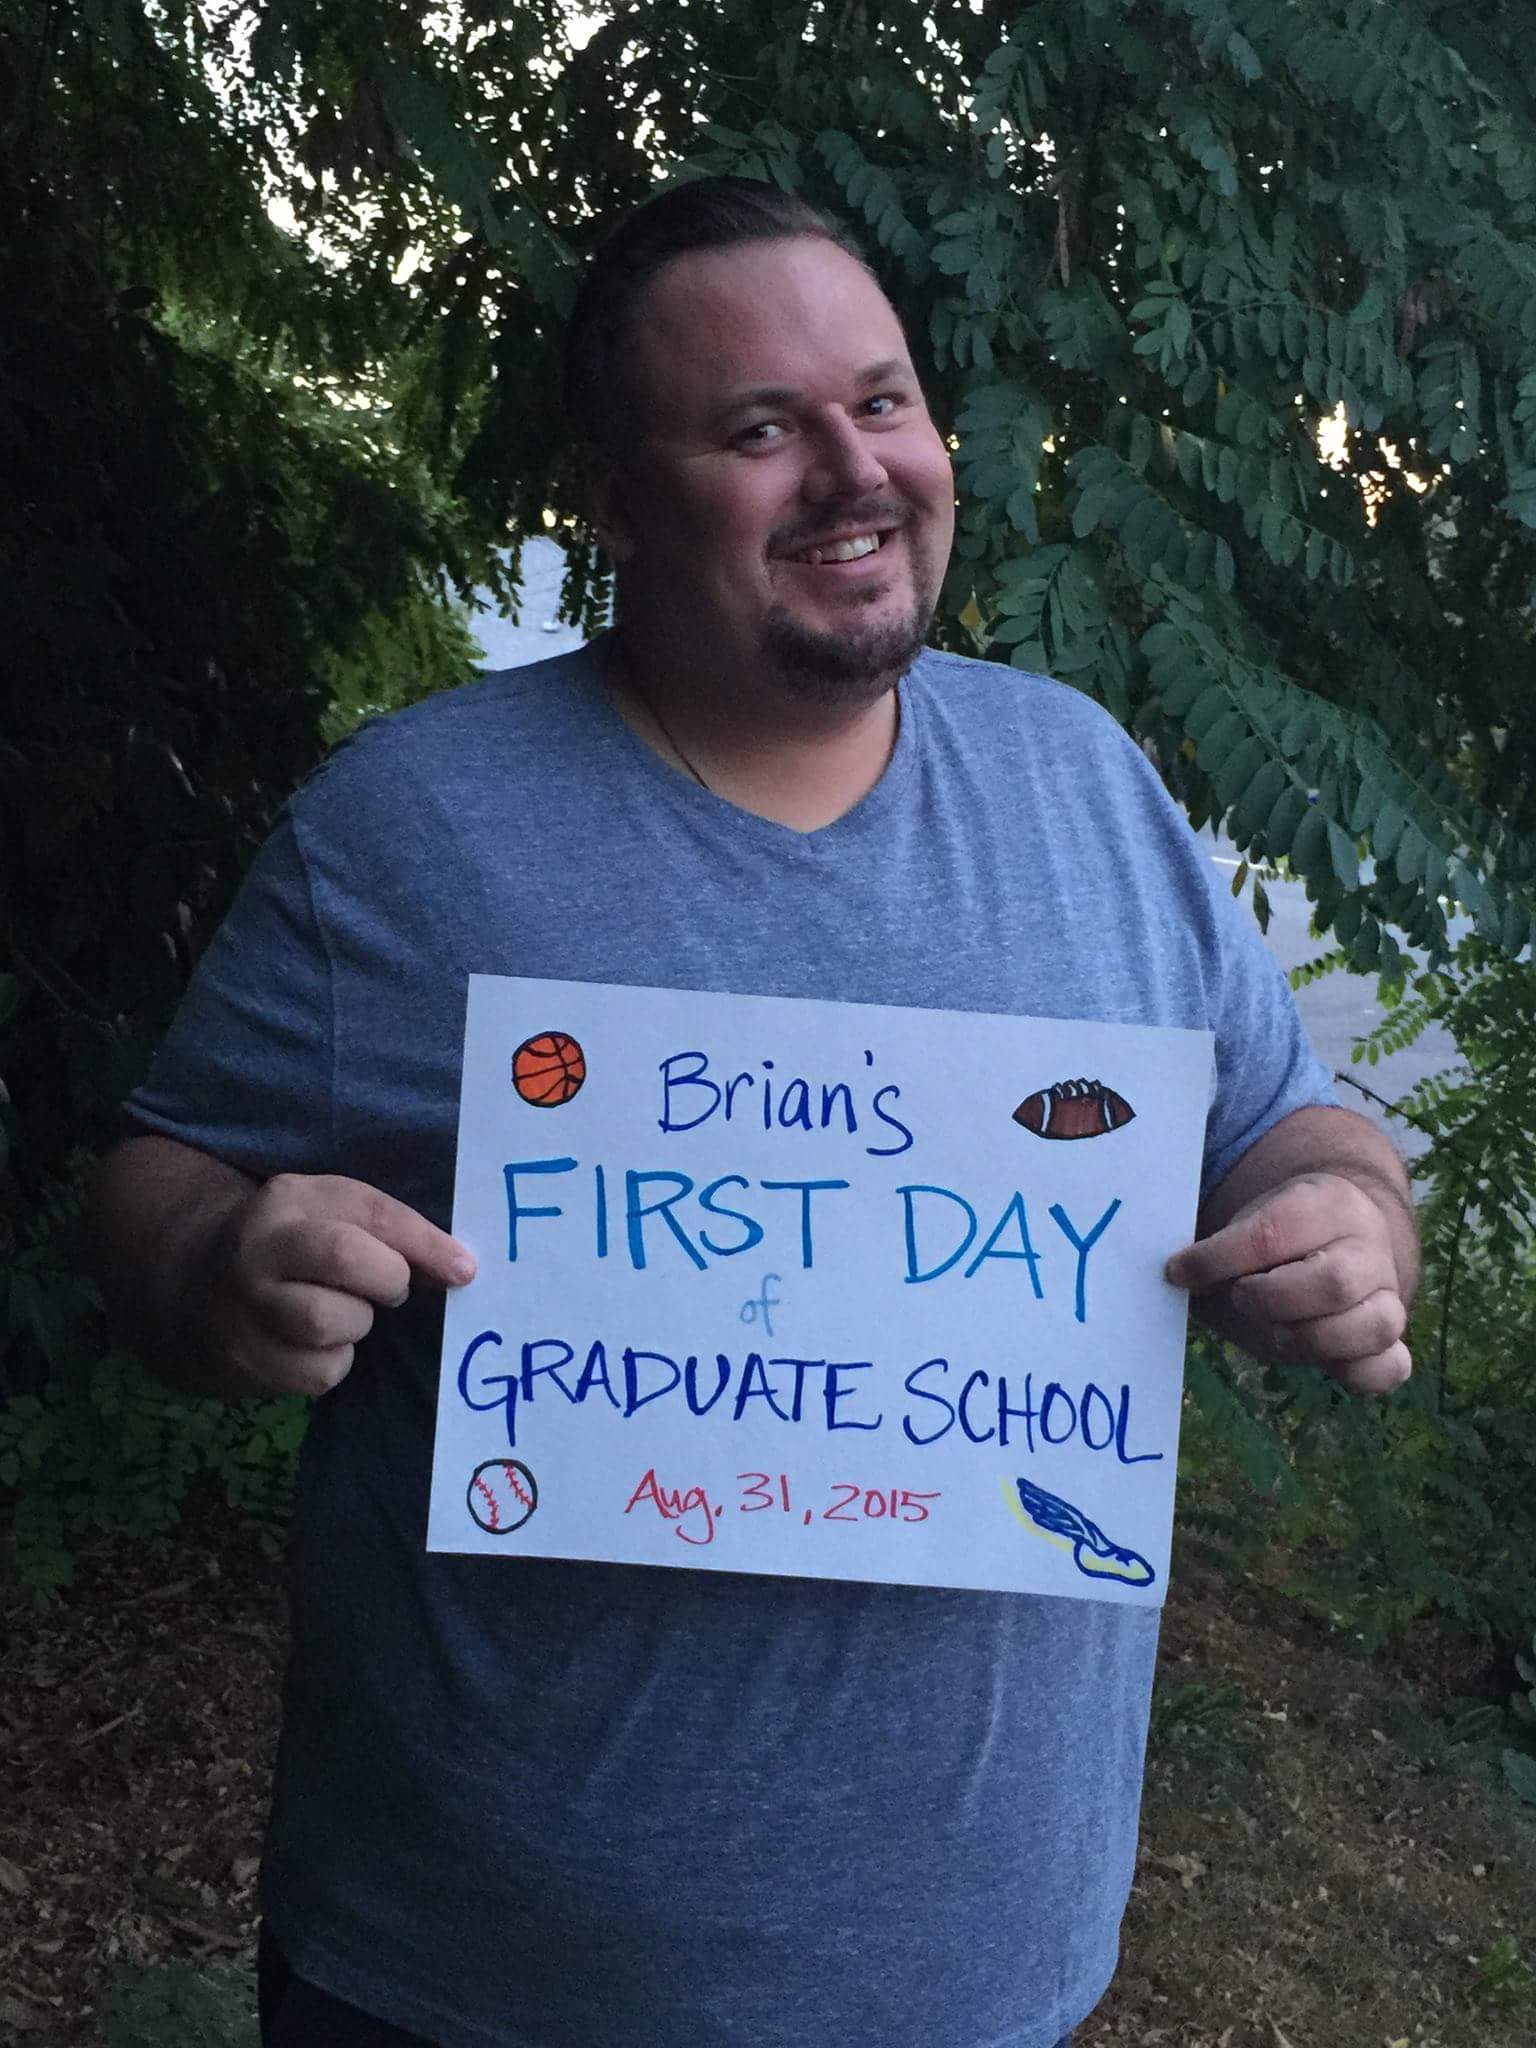 Brian's
FIRST DAY
of
GRADUATE SCHOOL
Aug. 31, 2015